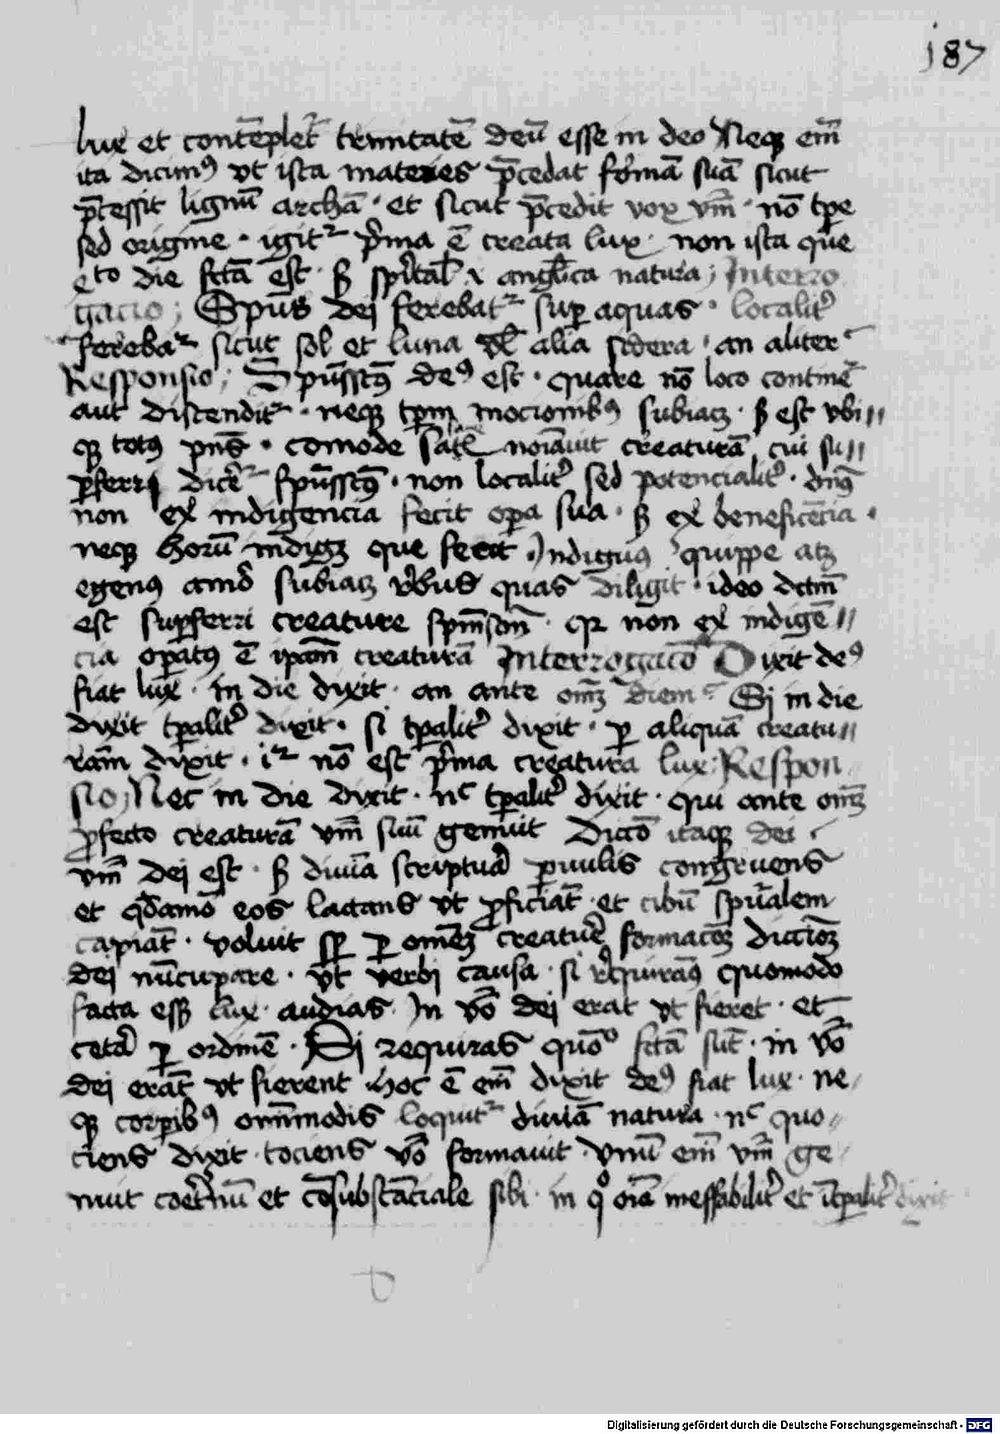 187
lux et contēplet᷑ trinitatē deū esse in deo Neq̨ em̄
ita dicimꝰ vt ista materies p̄cedat formā suā sicut
p̄cessit lignū archā · et sicut p̄cedit vox v̄m · nō tp̄e
sed origine · igit᷑ p̄ma ē creata lux · non ista que
4to die fc̄ta est · sꝫ sp̄ital̄ angl̄ica natura ; Interro
gacio ; Sp̄us dei ferebat᷑ sup aquas · localit᷑
ferebat᷑ sicut sol et luna vl̄ alia sidera · an aliter
Responsio ; Sp̄ussc̄tꝰ deꝰ est · quare nō loco contine᷑
aut distendit᷑ · neq̨ tp̄m mocionibꝰ subiacꝫ · sꝫ est vbi //
q̨ totꝰ pn̄s · comode noīauit creaturā cui su //
ꝑferri dicit᷑ sp̄ussc̄tꝰ · non localit᷑ sed potencialit᷑ · dn̄s
non ex indigencia fecit opa sua · sꝫ ex beneficēcia ·
neq̨ horū indigꝫ que fecit · Indiguus quippe atꝫ
egenus amor subiacꝫ rebus quas diligit · ideo dc̄m
est supferri creature sp̄msc̄m · q̨ non ex indigē //
cia opatꝰ ē ip̄am creaturā Interrogacō Dixit deꝰ
fiat lux · in die dixit · an ante om̄ꝫ diem · Si in die
dixit tp̄alit᷑ dixit · si tp̄alit᷑ dixit · ꝑ aliquā creatu //
ram dixit · i᷑ nō est p̄ma creatura lux ; Respon
sio ; Nec in die dixit · nc̄ tp̄alit᷑ dixit · qui ante om̄ꝫ
ꝓfecto creaturā v̄m suū genuit Dictō itaq̨ dei
v̄m dei est · sꝫ diuīa scriptura ꝑuulis congruens
et q̄damō eos lactans vt ꝓficiāt · et cibū sp̄ualem
capiāt · voluit sꝑ ꝑ omēꝫ creature formacōꝫ dictiōꝫ
dei nūcupare · vt verbi causa · si requiram̄ꝰ quomodo
facta esset lux · audias · In v̄o dei erat vt fieret · et
cetera ꝑ ordinē · Si requiras quōo fc̄ta sūt · in v̄o
dei erāt vt fierent hoc ē em̄ dixit deꝰ fiat lux · ne /
q̨ corꝑibꝰ omīmodis loquit᷑ diuīa natura · nc̄ quo //
ciens dixit · tociens v̄o formauit · vnū em̄ v̄m ge /
nuit coet᷑nū et cōsubstāciale sibi · in qͦ oīa ineffabilit᷑ et īt̄palit᷑ dixit
Digitalisierung gefördert durch die Deutsche Forschungsgemeinschaft · DFG